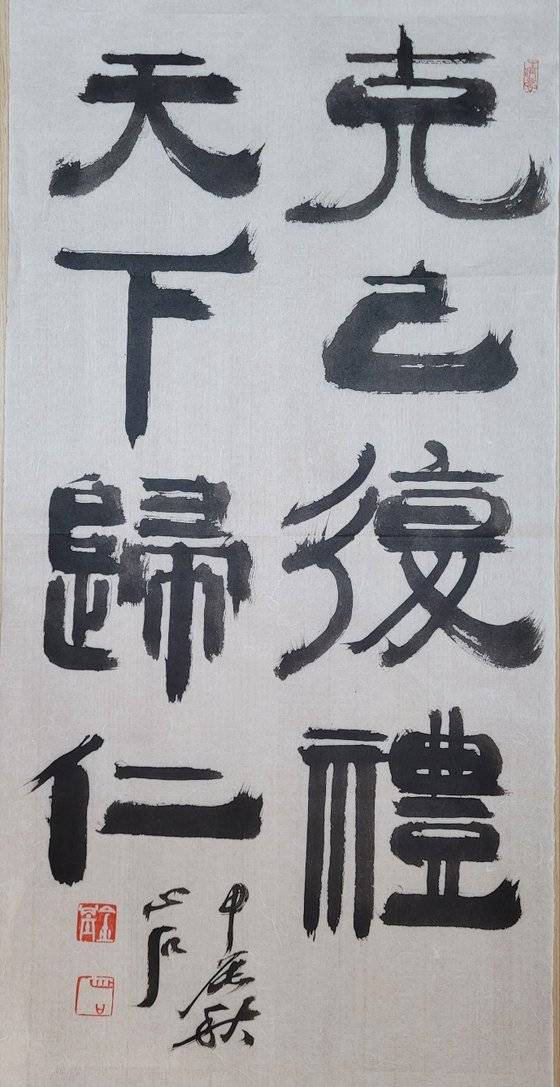 克己復禮
天下歸仁
甲辰秋